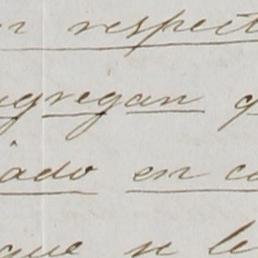 n respect
gregan q
iado en co
que se le